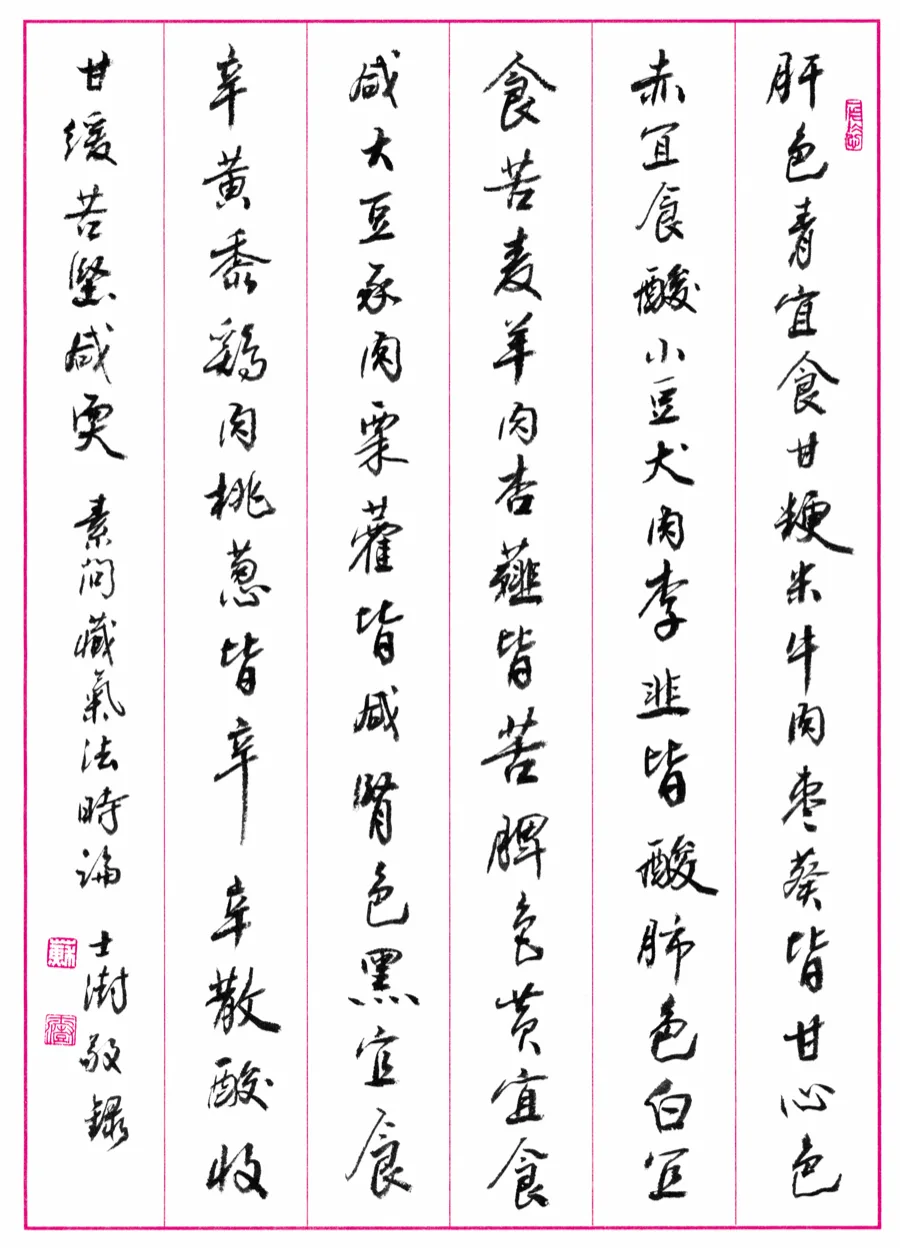 肝色青宜食甘粳米牛肉枣葵皆甘心色
赤宜食酸小豆犬肉李韭皆酸肺色白宜
食苦麦羊肉杏薤皆苦脾色黄宜食
咸大豆豕肉栗藿皆咸肾色黑宜食
辛黄黍鸡肉桃葱皆辛辛散酸收
甘缓苦坚咸耎 素问藏氣法時论 士澍敬録